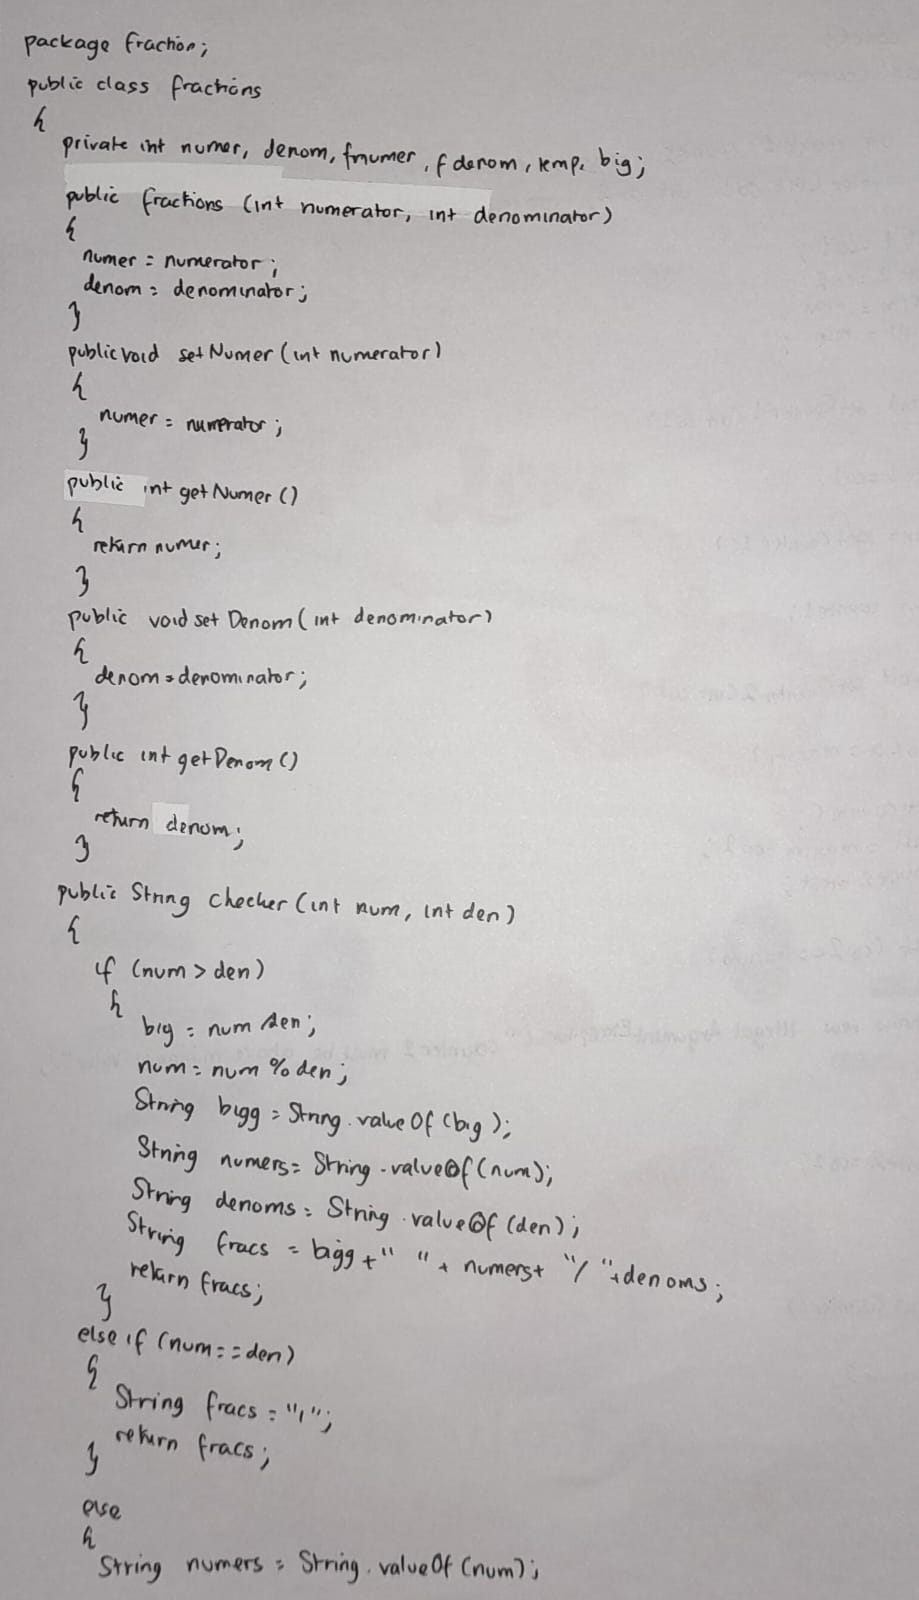 package fraction;
public class fractions
{
private int numer, denom, fnumer, fdenom, temp, big;
public fractions (int numerator, int denominator)
{
numer = numerator;
denom = denominator;
}
public void setNumer (int numerator)
{
numer = numerator;
}
public int getNumer ()
{
return numer;
}
public void setDenom (int denominator)
{
denom = denominator;
}
public int getDenom ()
{
return denom;
}
public String checker (int num, int den)
{
if (num > den)
{
big = num den;
num = num % den;
String bigg = String.valueOf (big);
String numers = String.valueOf (num);
String denoms = String.valueOf (den);
String fracs = bigg + " " + numers + "/" + denoms;
return fracs;
}
else if (num == den)
{
String fracs = "1";
return fracs;
}
else
{
String numers = String.valueOf (num);